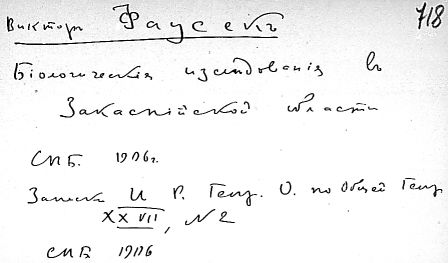 Викторъ Фаусекъ 718
Біологическія изслѣдованія въ
Закаспійской области
СПБ. 1906г.
Записки И. Р. Геогр. О. по Общей Геогр
XXVII, N 2
СПБ 1906